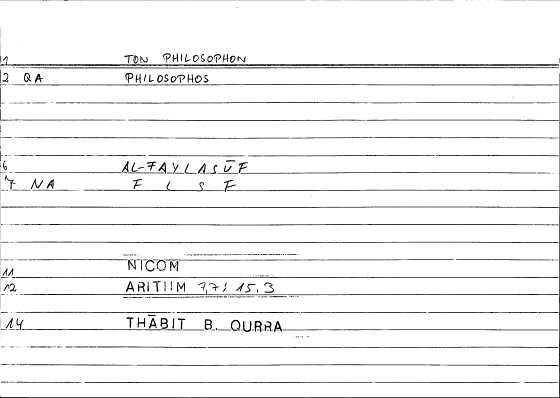 1 TON PHILOSOPHON
2 QA PHILOSOPHOS
6 AL-FAYLASŪF
7 NA F L S F
11 NICOM
12 ARITIIM 15.3
14 THĀBIT B. QURRA